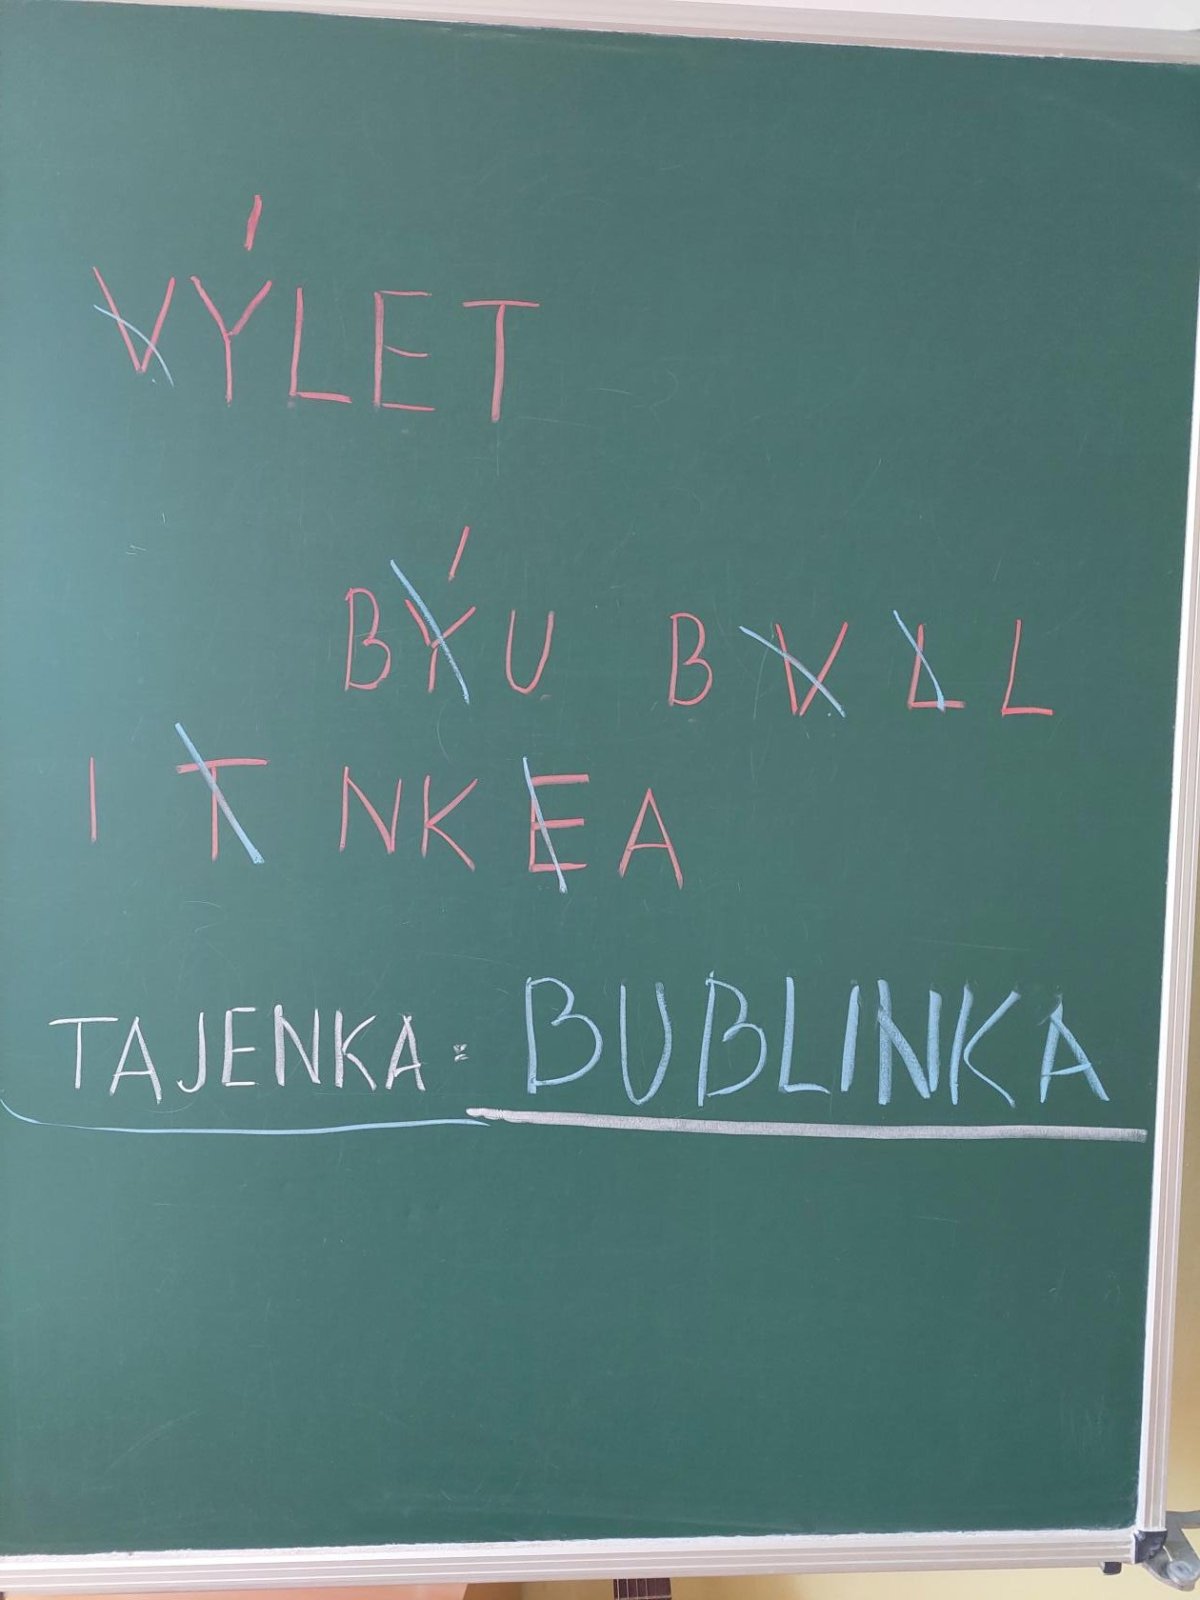 VÝLET
BÝU BVLL
I T NKEA
TAJENKA = BUBLINKA